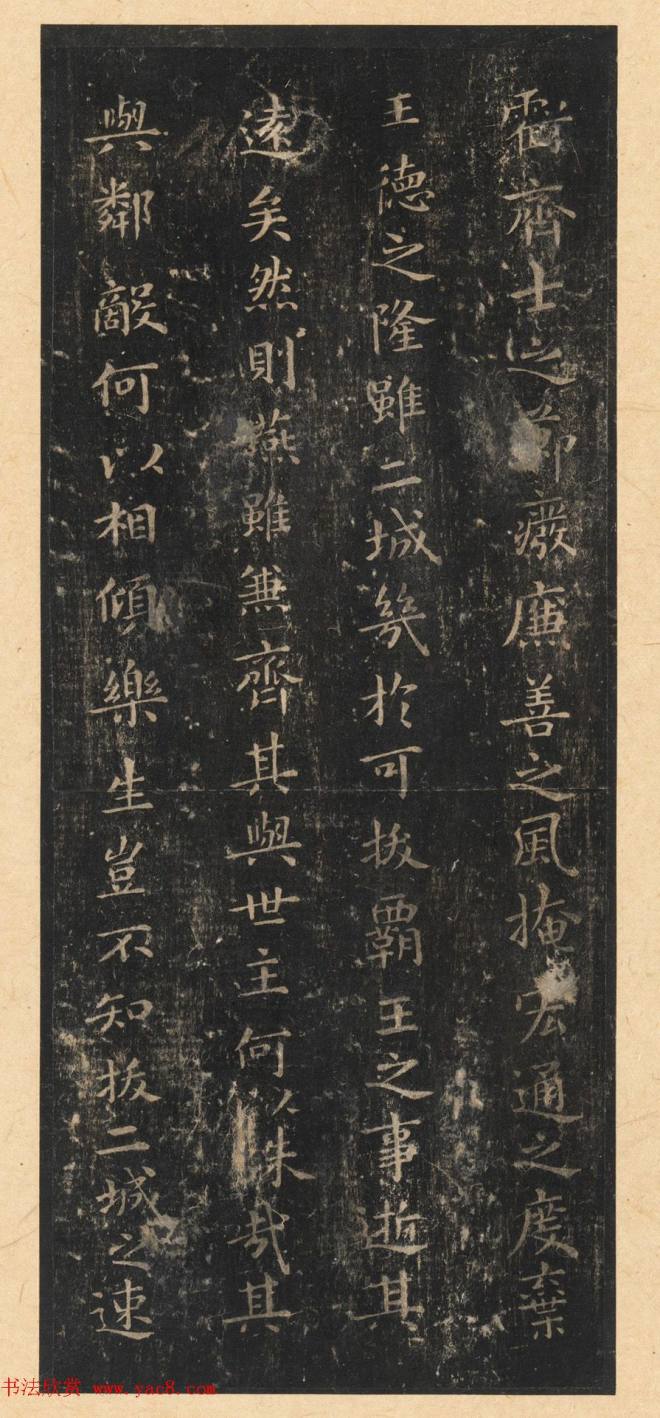 霸齊士之節廢廉善之風掩宏通之度棄
王德之隆雖二城幾於可拔霸王之事逝其
遠矣然則燕雖兼齊其與世主何以殊哉其
與鄰敵何以相傾樂生豈不知拔二城之速
书法欣赏 www.yac8.com